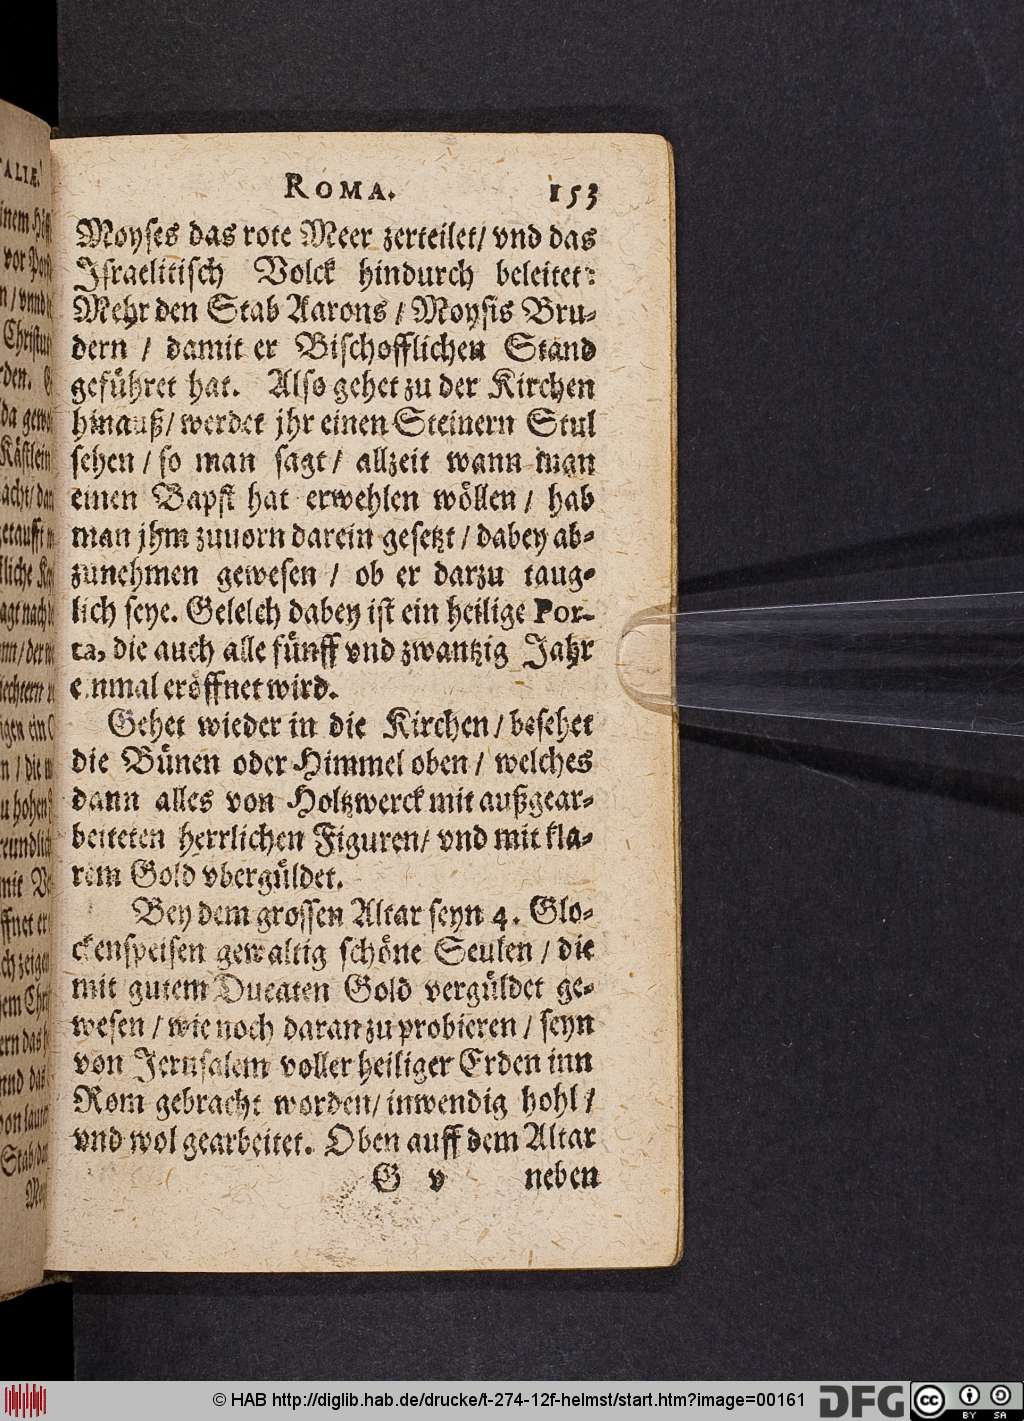 ROMA. 153
Moyses das rote Meer zerteilet/ vnd das
Israelitisch Volck hindurch beleitet:
Mehr den Stab Aarons / Moysis Bru-
dern / damit er Bischofflichen Stand
geführet hat. Also gehet zu der Kirchen
hinauß/ werdet jhr einen Steinern Stul
sehen / so man sagt / allzeit wann man
einen Bapst hat erwehlen wöllen / hab
man jhm zuuorn darein gesetzt / dabey ab-
zunehmen gewesen / ob er darzu taug-
lich seye. Geleich dabey ist ein heilige Por-
ta, die auch alle fünff vnd zwantzig Jahr
einmal eröffnet wird.
Gehet wieder in die Kirchen / besehet
die Bünen oder Himmel oben / welches
dann alles von Holtzwerck mit außgear-
beiteten herrlichen Figuren/ vnd mit kla-
rem Gold vbergüldet.
Bey dem grossen Altar seyn 4. Glo-
ckenspeisen gewaltig schöne Seulen / die
mit gutem Ducaten Gold vergüldet ge-
wesen / wie noch daran zu probieren / seyn
von Jerusalem voller heiliger Erden inn
Rom gebracht worden/ inwendig hohl /
vnd wol gearbeitet. Oben auff dem Altar
G v neben
© HAB http://diglib.hab.de/drucke/t-274-12f-helmst/start.htm?image=00161
DFG
cc BY SA